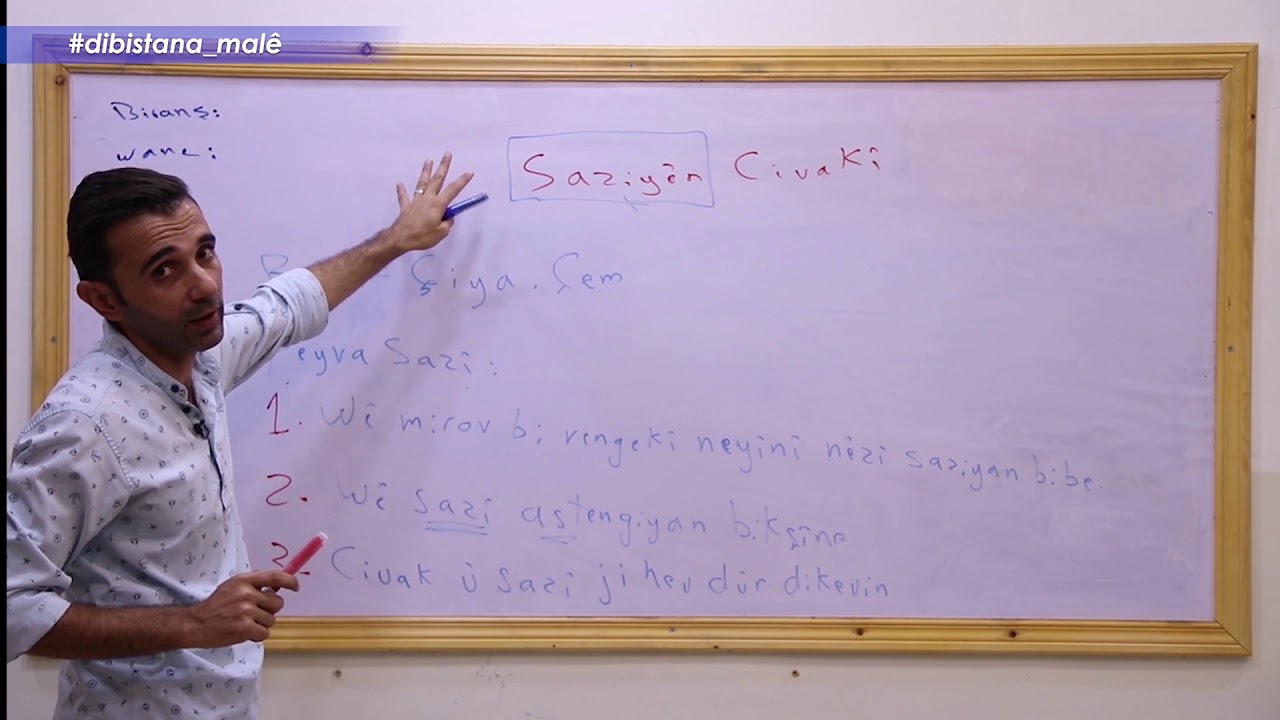 #dibistana_malê
Biranş:
wane:
Saziyên Civakî
Çiya. Çem
Sazî:
1. Wê mirov bi rengekî neyînî nêzî saziyan bibe.
2. Wê sazî astengiyan bikşîne
3. Civak û sazî ji hev dûr dikevin